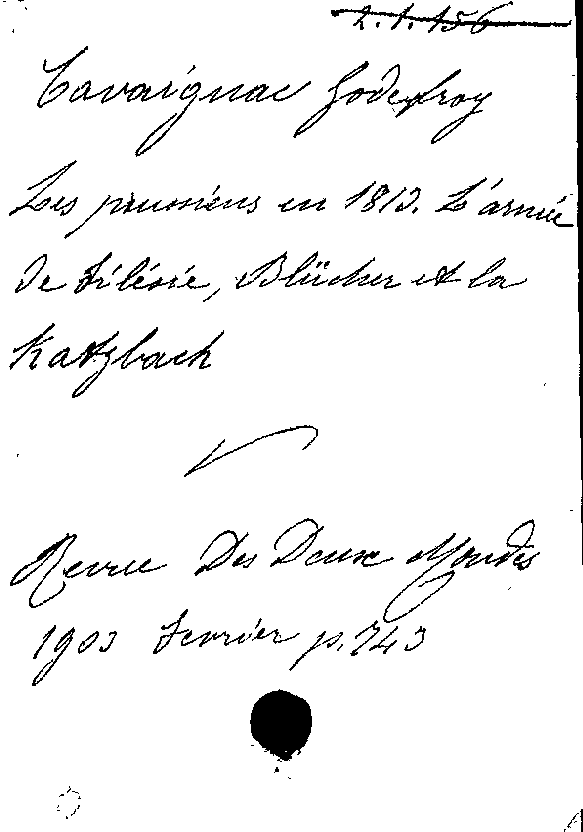 2.1.156
Cavaignac Godefroy
Les prussiens en 1813. L'armée
de Silésie, Blücher et la
Katzbach
Revue Des Deux Mondes
1903 Fevrier p. 743